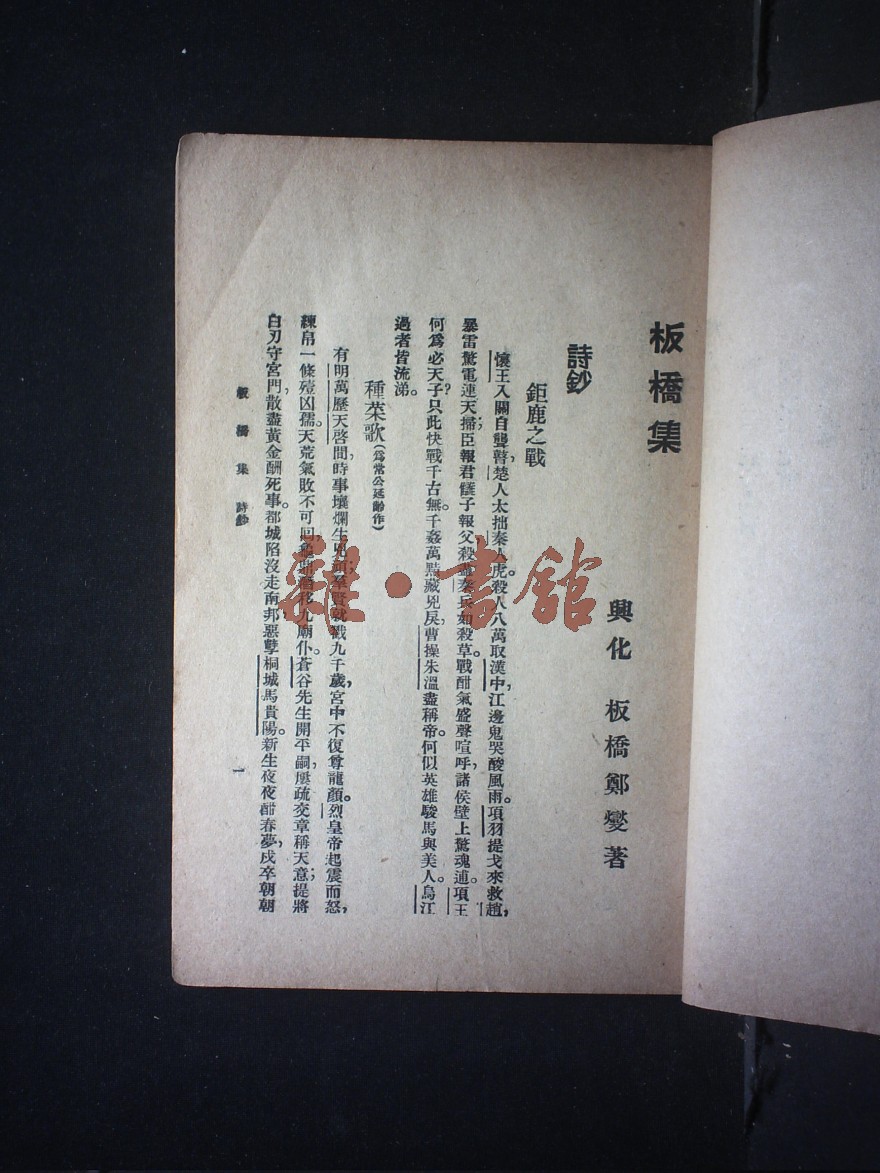 板橋集
興化 板橋鄭燮著
詩鈔
鉅鹿之戰
懷王入關自聾瞽，楚人太拙秦人虎。殺人八萬取漢中，江邊鬼哭酸風雨。項羽提戈來救趙，
暴雷驚電連天掃；臣報君讎子報父，殺盡秦兵如殺草。戰酣氣盛聲喧呼，諸侯壁上驚魂逋。項王
何爲必天子？只此快戰千古無。千姦萬黠藏兇戾，曹操朱溫盡稱帝。何似英雄駿馬與美人，烏江
過者皆流涕。
種菜歌（爲常公延齡作）
有明萬歷天啓間，時事壞爛生兇頑；羣賢就戮九千歲，宮中不復尊龍顏。烈皇帝起震而怒，
練帛一條殪凶儒。天荒氣敗不可回，龜鼎潛移九廟仆。蒼谷先生開平嗣，屢疏交章稱天意；提將
白刃守宮門，散盡黃金酬死事。都城陷沒走南邦，惡孽桐城馬貴陽。新生夜夜酣春夢，戍卒朝朝
板橋集 詩鈔
一
雜·書館